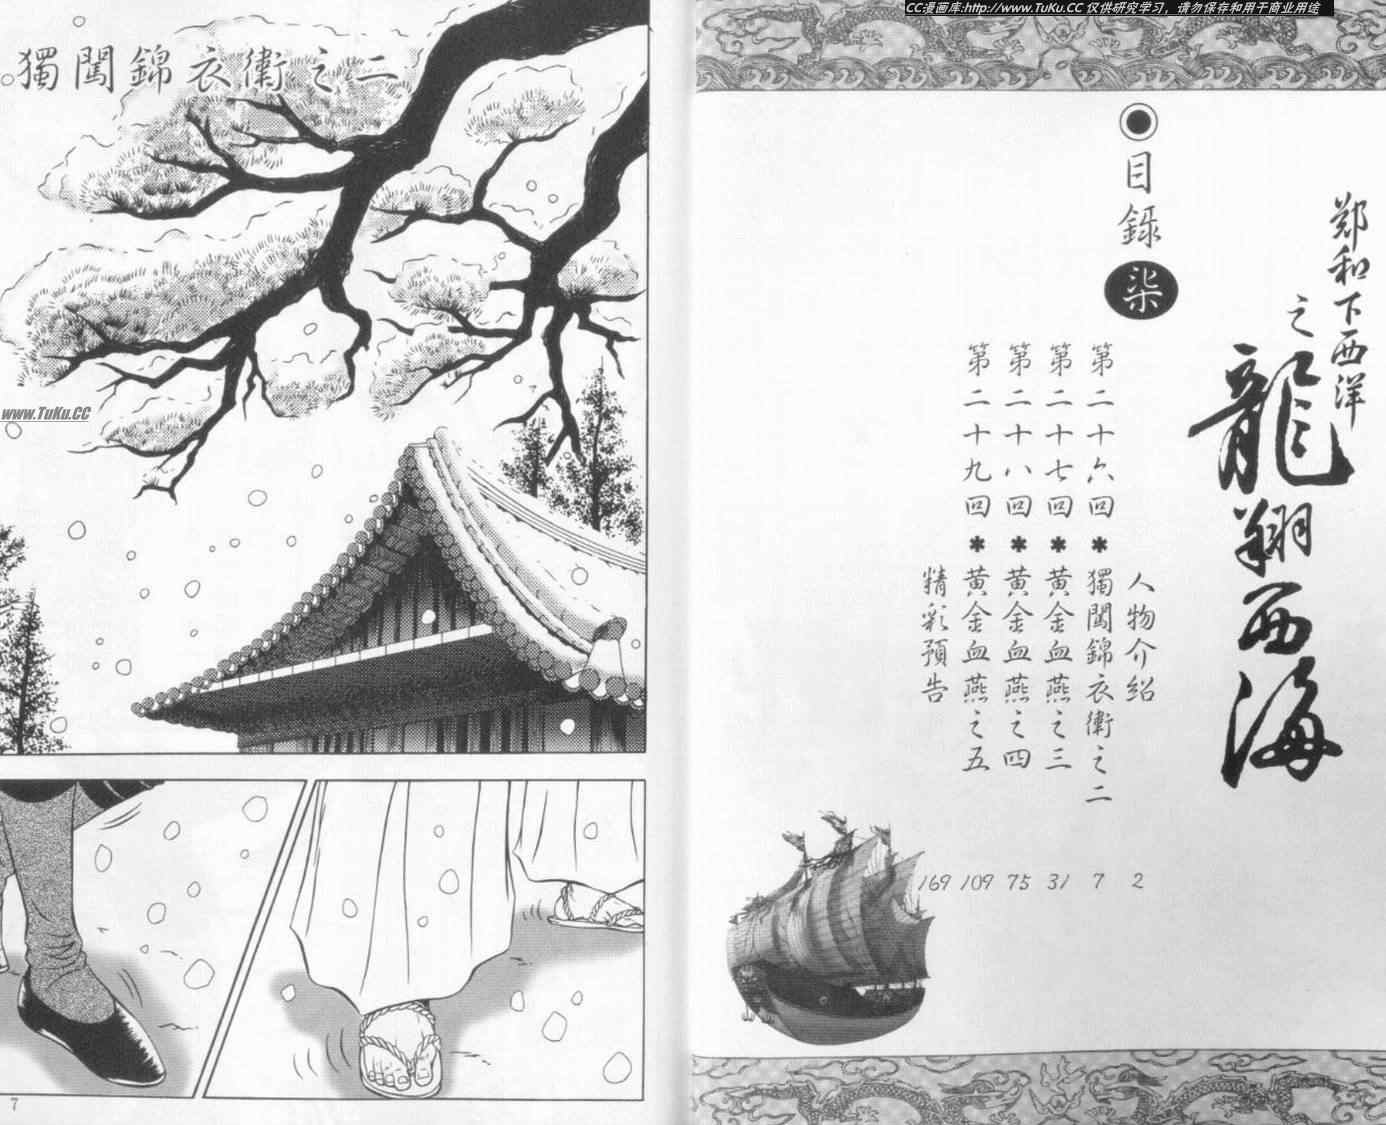 CC漫画库:http://www.TuKu.CC 仅供研究学习，请勿保存和用于商业用途
鄭和下西洋
之
龍翔西海
目錄
柒
人物介紹 2
第二十六回＊獨闖錦衣衛之二 7
第二十七回＊黃金血燕之三 31
第二十八回＊黃金血燕之四 75
第二十九回＊黃金血燕之五 109
精彩預告 169
獨闖錦衣衛之二
www.TuKu.CC
7